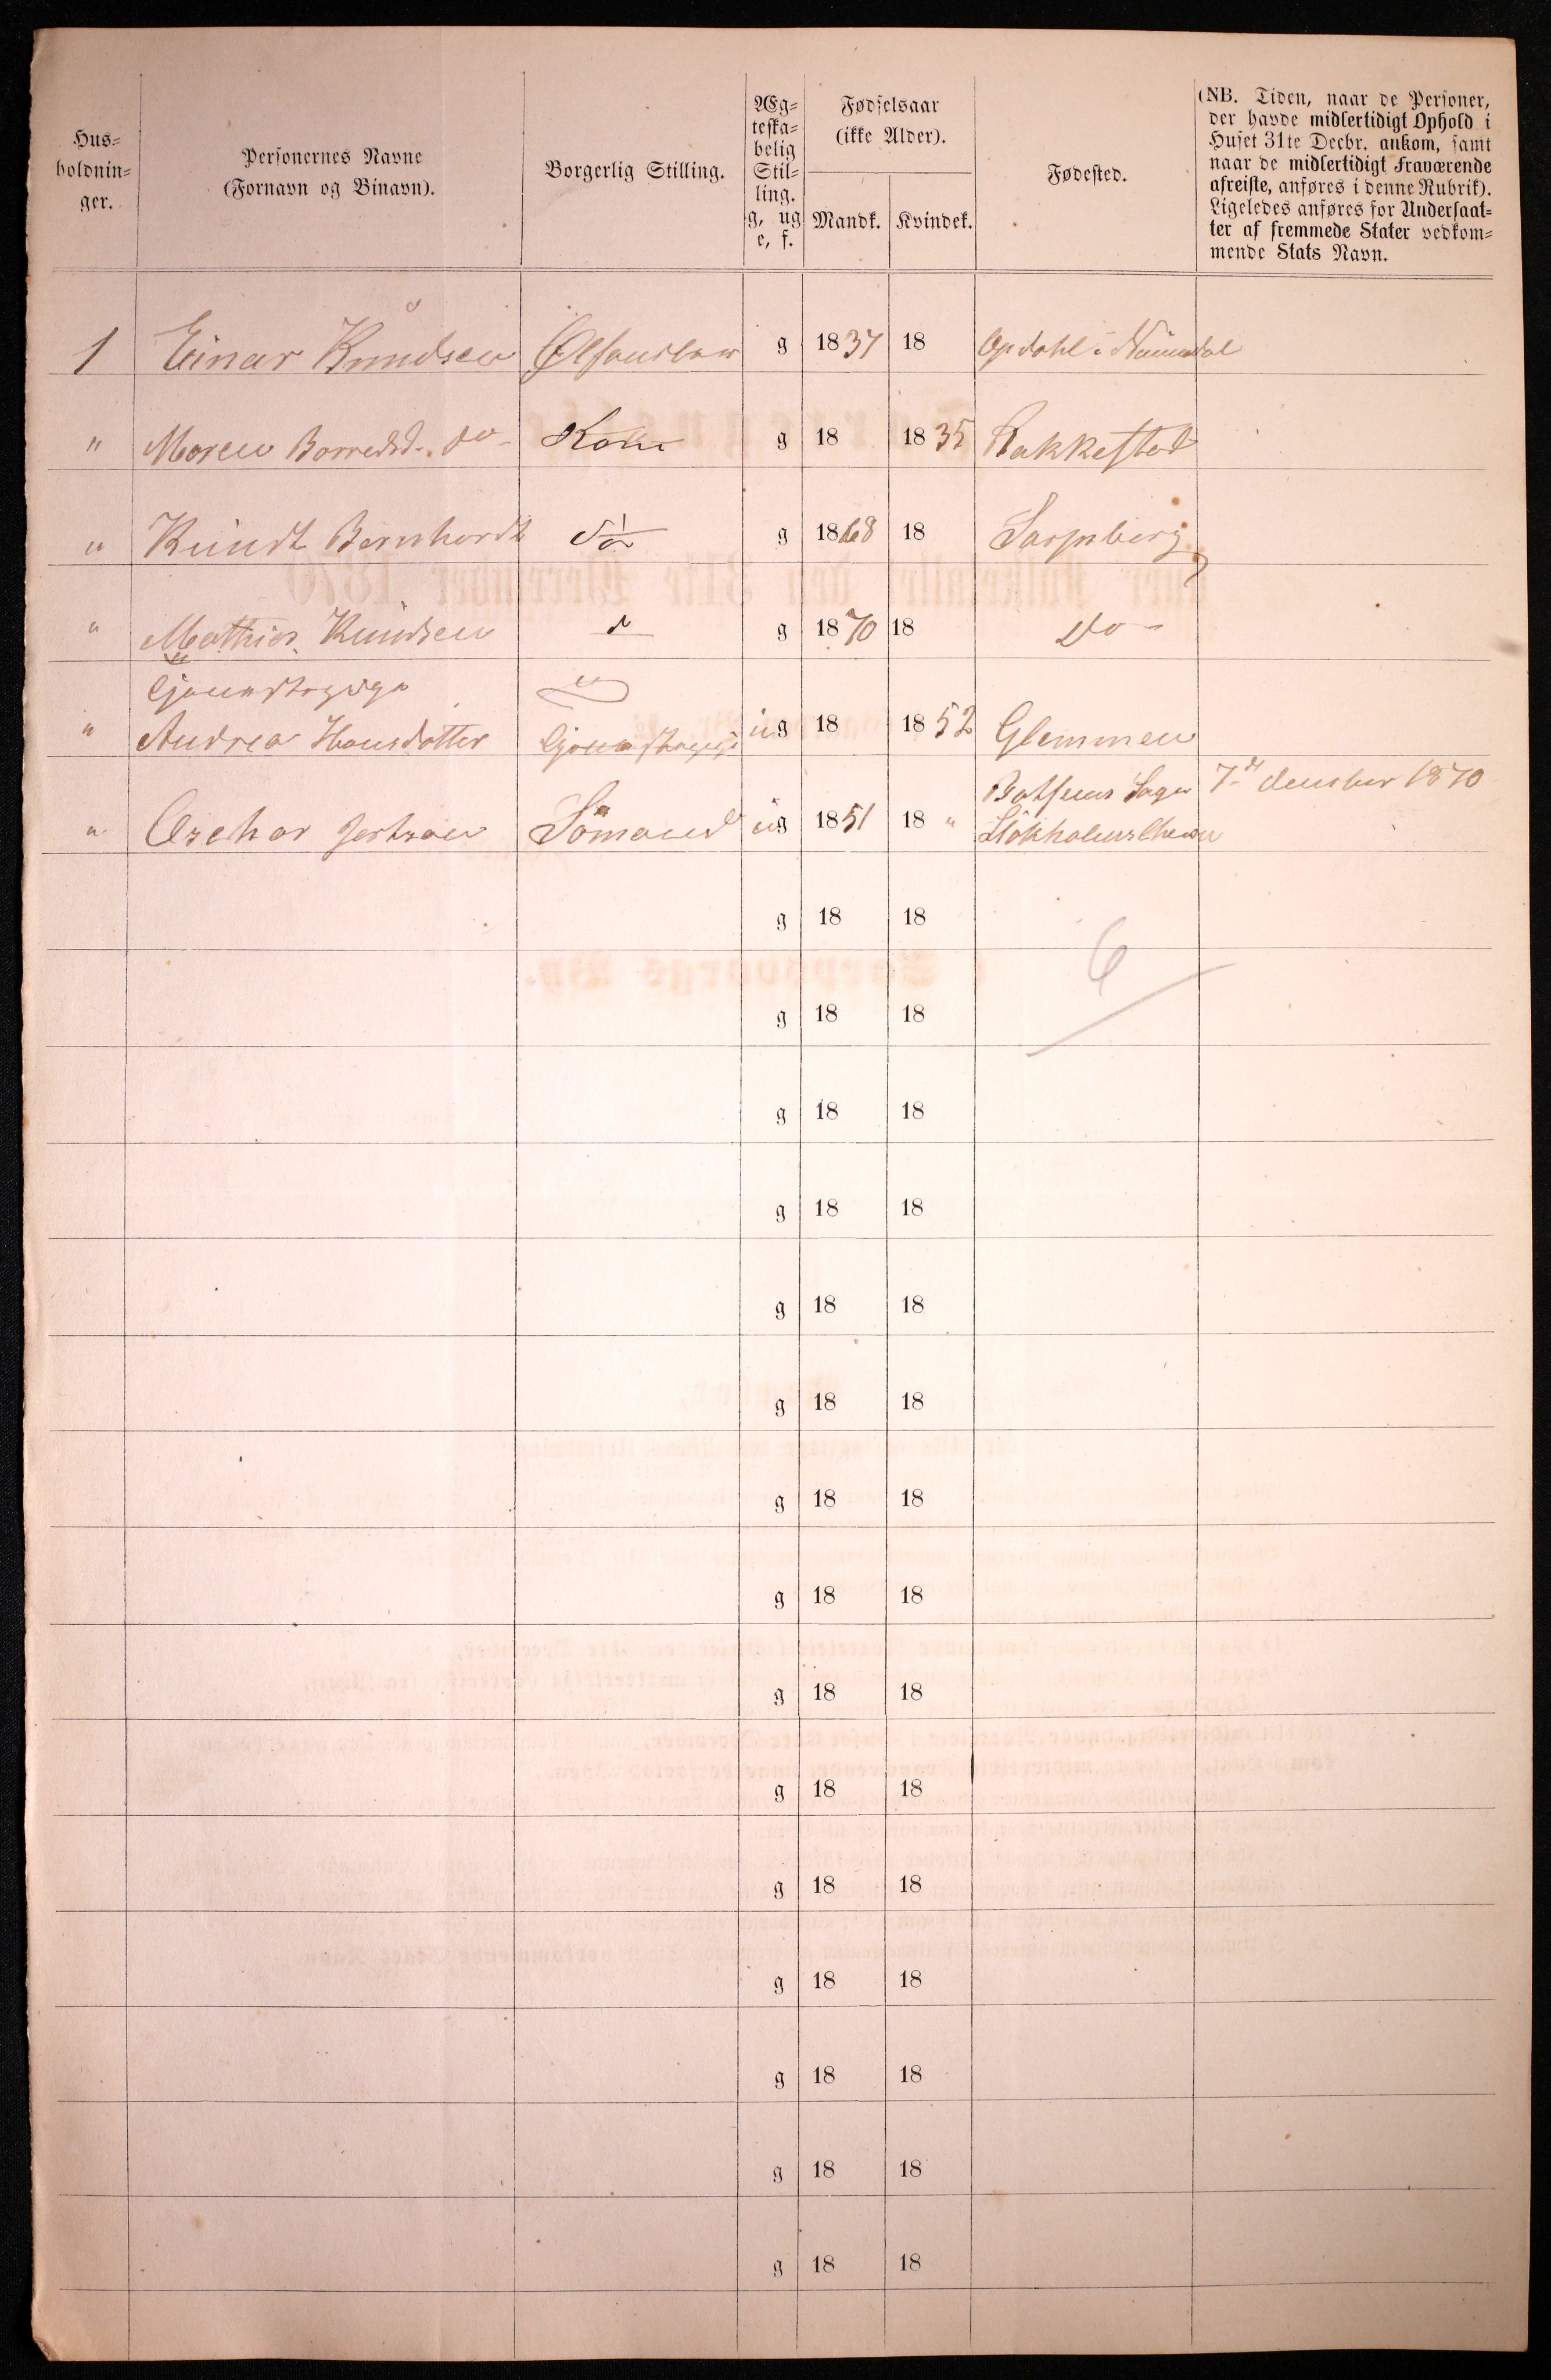 Hus-
holdnin-
ger.
Personernes Navne
(Fornavn og Binavn).
Borgerlig Stilling.
Æg-
teska-
belig
Stil-
ling.
g, ug
e, f.
Fødselsaar
(ikke Alder).
Mandk. Kvindek.
Fødested.
(NB. Tiden, naar de Personer,
der havde midlertidigt Ophold i
Huset 31te Decbr. ankom, samt
naar de midlertidigt Fraværende
afreiste, anføres i denne Rubrik).
Ligeledes anføres for Undersaat-
ter af fremmede Stater vedkom-
mende Stats Navn.
1 Einar Knudsen g 1837 18 Opdahl i Numedal
" Maren do- Kone g 18 1835 Rakkestad
" Knudt Bernhardt g 1868 18 Sarpsborg
" Mathias Knudsen g 1870 18 do-
" Andrea Hansdatter ug 18 1852 Glemmen
7de 1870
" Oschar Sømand ug 1851 18 "
g 18 18
6
g 18 18
g 18 18
g 18 18
g 18 18
g 18 18
g 18 18
g 18 18
g 18 18
g 18 18
g 18 18
g 18 18
g 18 18
g 18 18
g 18 18